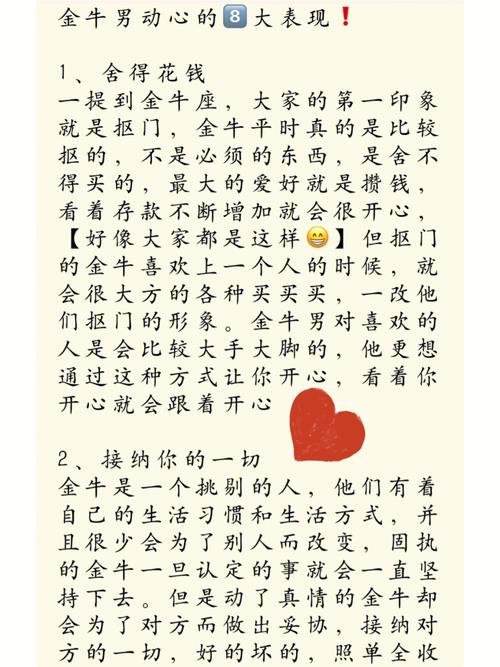 金牛男动心的8️⃣大表现❗
1、舍得花钱
一提到金牛座，大家的第一印象
就是抠门，金牛平时真的是比较
抠的，不是必须的东西，是舍不
得买的，最大的爱好就是攒钱，
看着存款不断增加就会很开心，
【好像大家都是这样😁】但抠门
的金牛喜欢上一个人的时候，就
会很大方的各种买买买，一改他
们抠门的形象。金牛男对喜欢的
人是会比较大手大脚的，他更想
通过这种方式让你开心，看着你
开心就会跟着开心
2、接纳你的一切
金牛是一个挑剔的人，他们有着
自己的生活习惯和生活方式，并
且很少会为了别人而改变，固执
的金牛一旦认定的事就会一直坚
持下去。但是动了真情的金牛却
会为了对方而做出妥协，接纳对
方的一切，好的坏的，照单全收